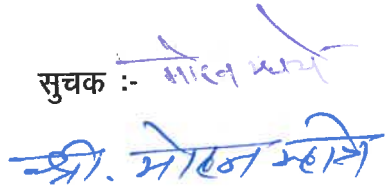 सुचक :- मोहन म्हात्रे
श्री. मोहन म्हात्रे